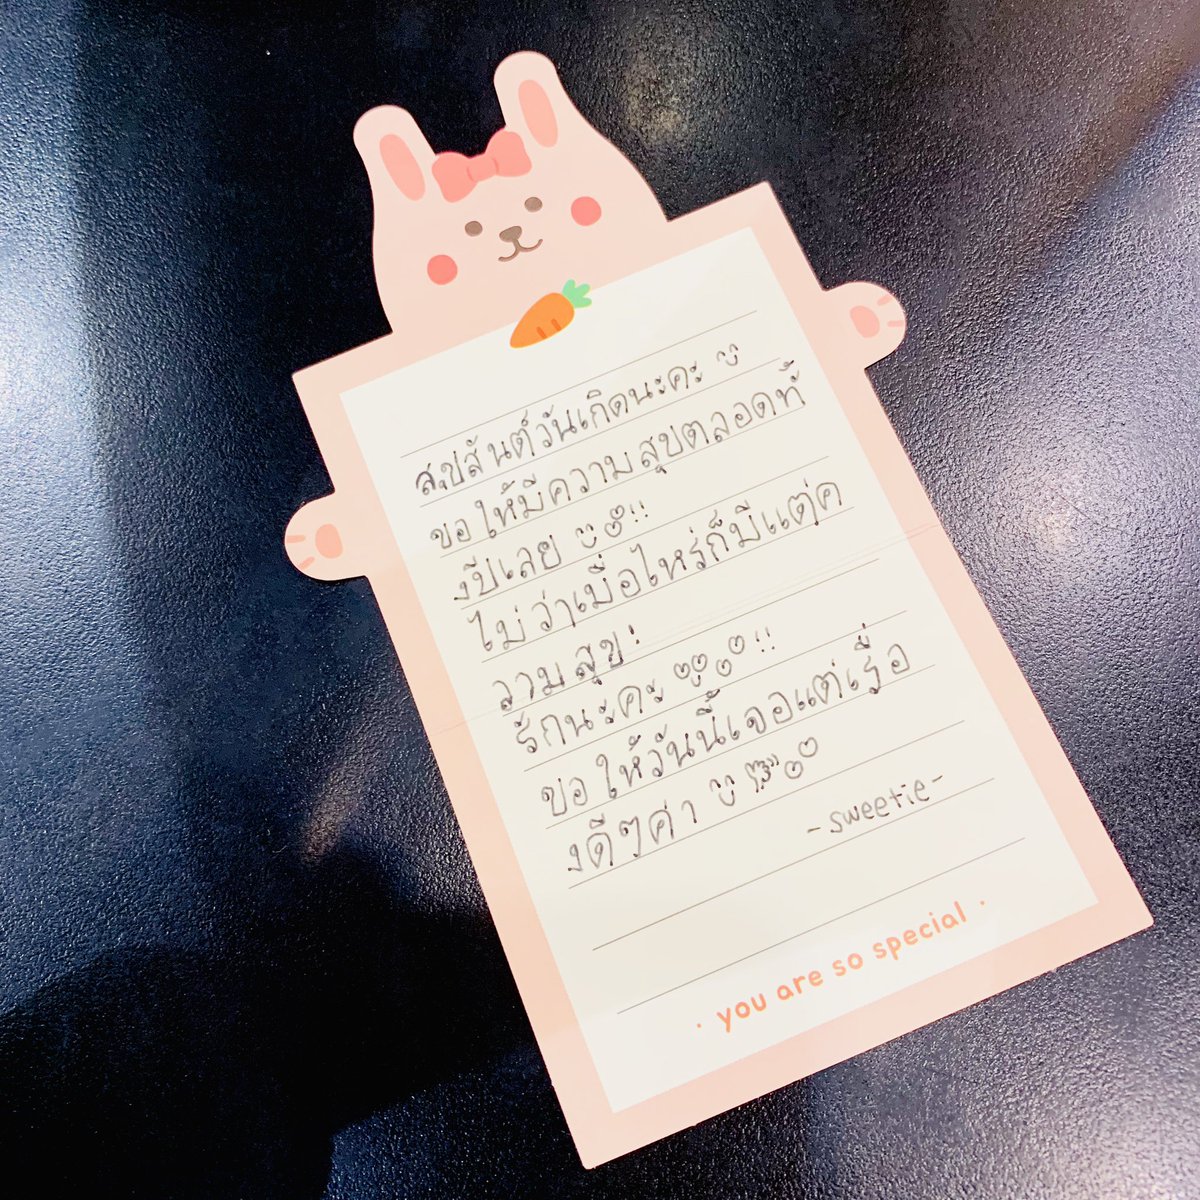 สุขสันต์วันเกิดนะคะ
ขอให้มีความสุขตลอดทั้
งปีเลย !!
ไม่ว่าเมื่อไหร่ก็มีแต่ค
วามสุข:
รักนะคะ !!
ขอให้วันนี้เจอแต่เรื่อ
งดีๆค่า
-sweetie-
· you are so special ·